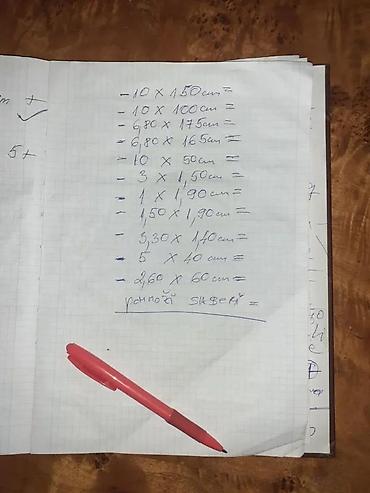 - 10 x 150 cm =
- 10 x 100 cm =
- 6,80 x 175 cm =
- 6,80 x 165 cm =
- 10 x 50 cm =
- 3 x 1,50 cm =
- 1 x 1,90 cm =
- 1,50 x 1,90 cm =
- 3,30 x 1,40 cm =
- 5 x 40 cm =
- 2,60 x 60 cm =
5t